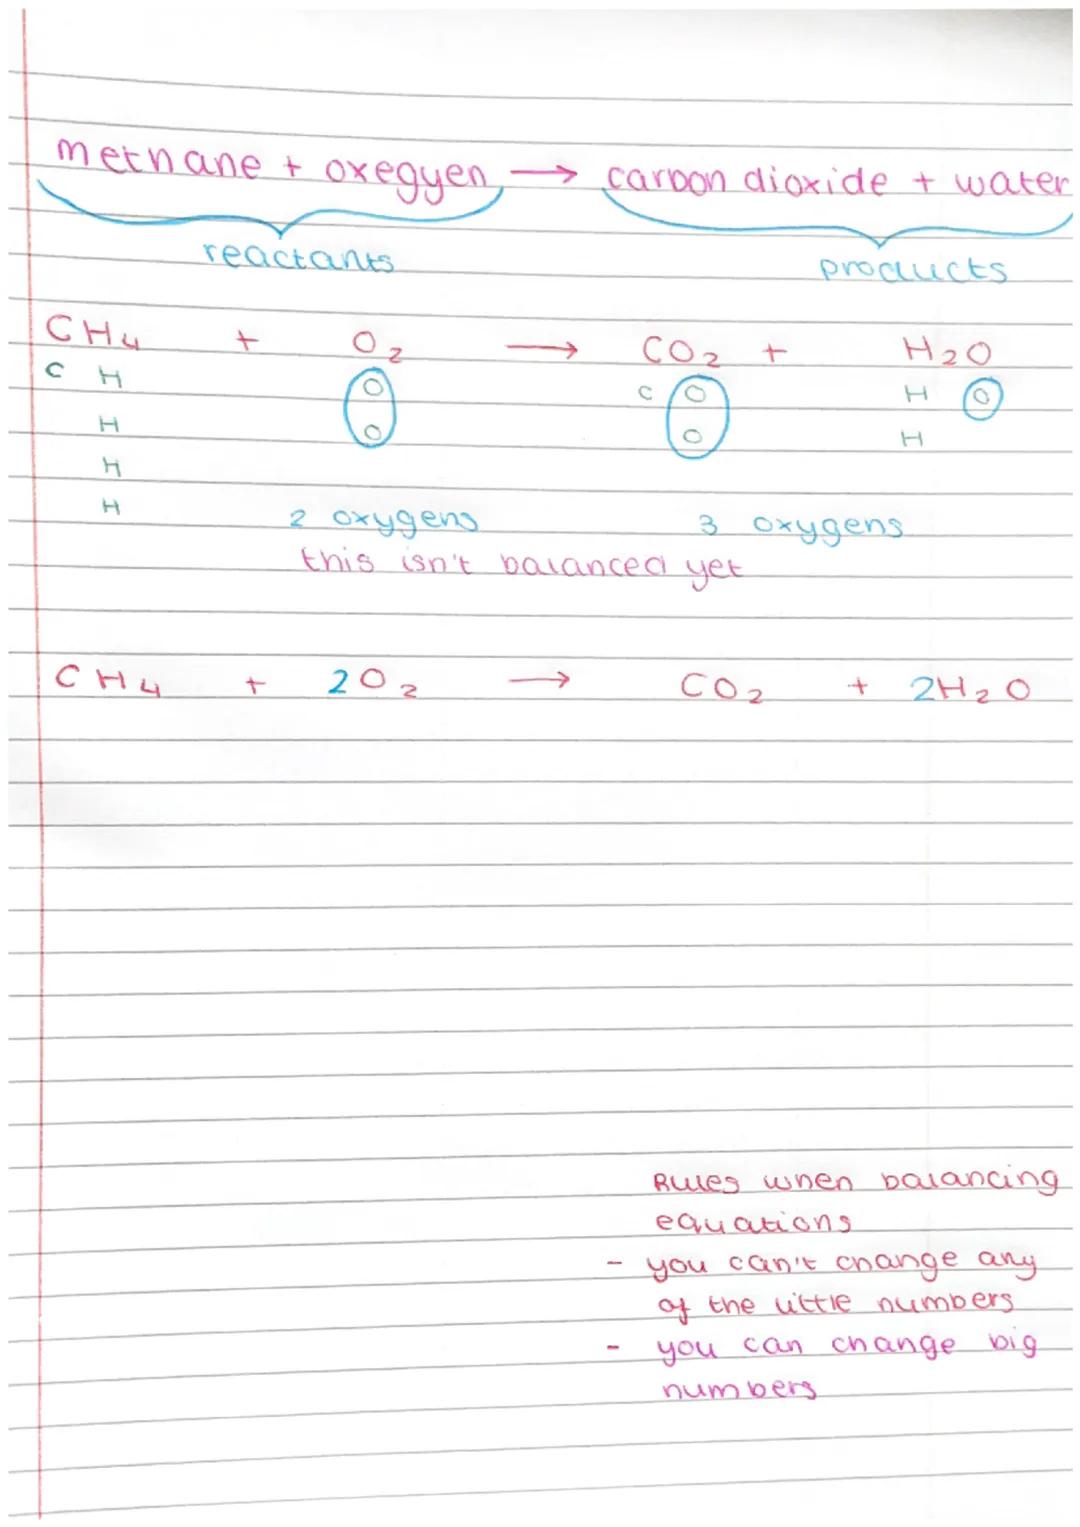 methane + oxegyen → carbon dioxide + water
reactants products
CH₄ + O₂ → CO₂ + H₂O
C H O C O H O
H O O H
H
H
2 oxygens 3 oxygens
this isn't balanced yet
CH₄ + 2O₂ → CO₂ + 2H₂O
Rules when balancing
equations
- you can't change any
of the little numbers
- you can change big
numbers